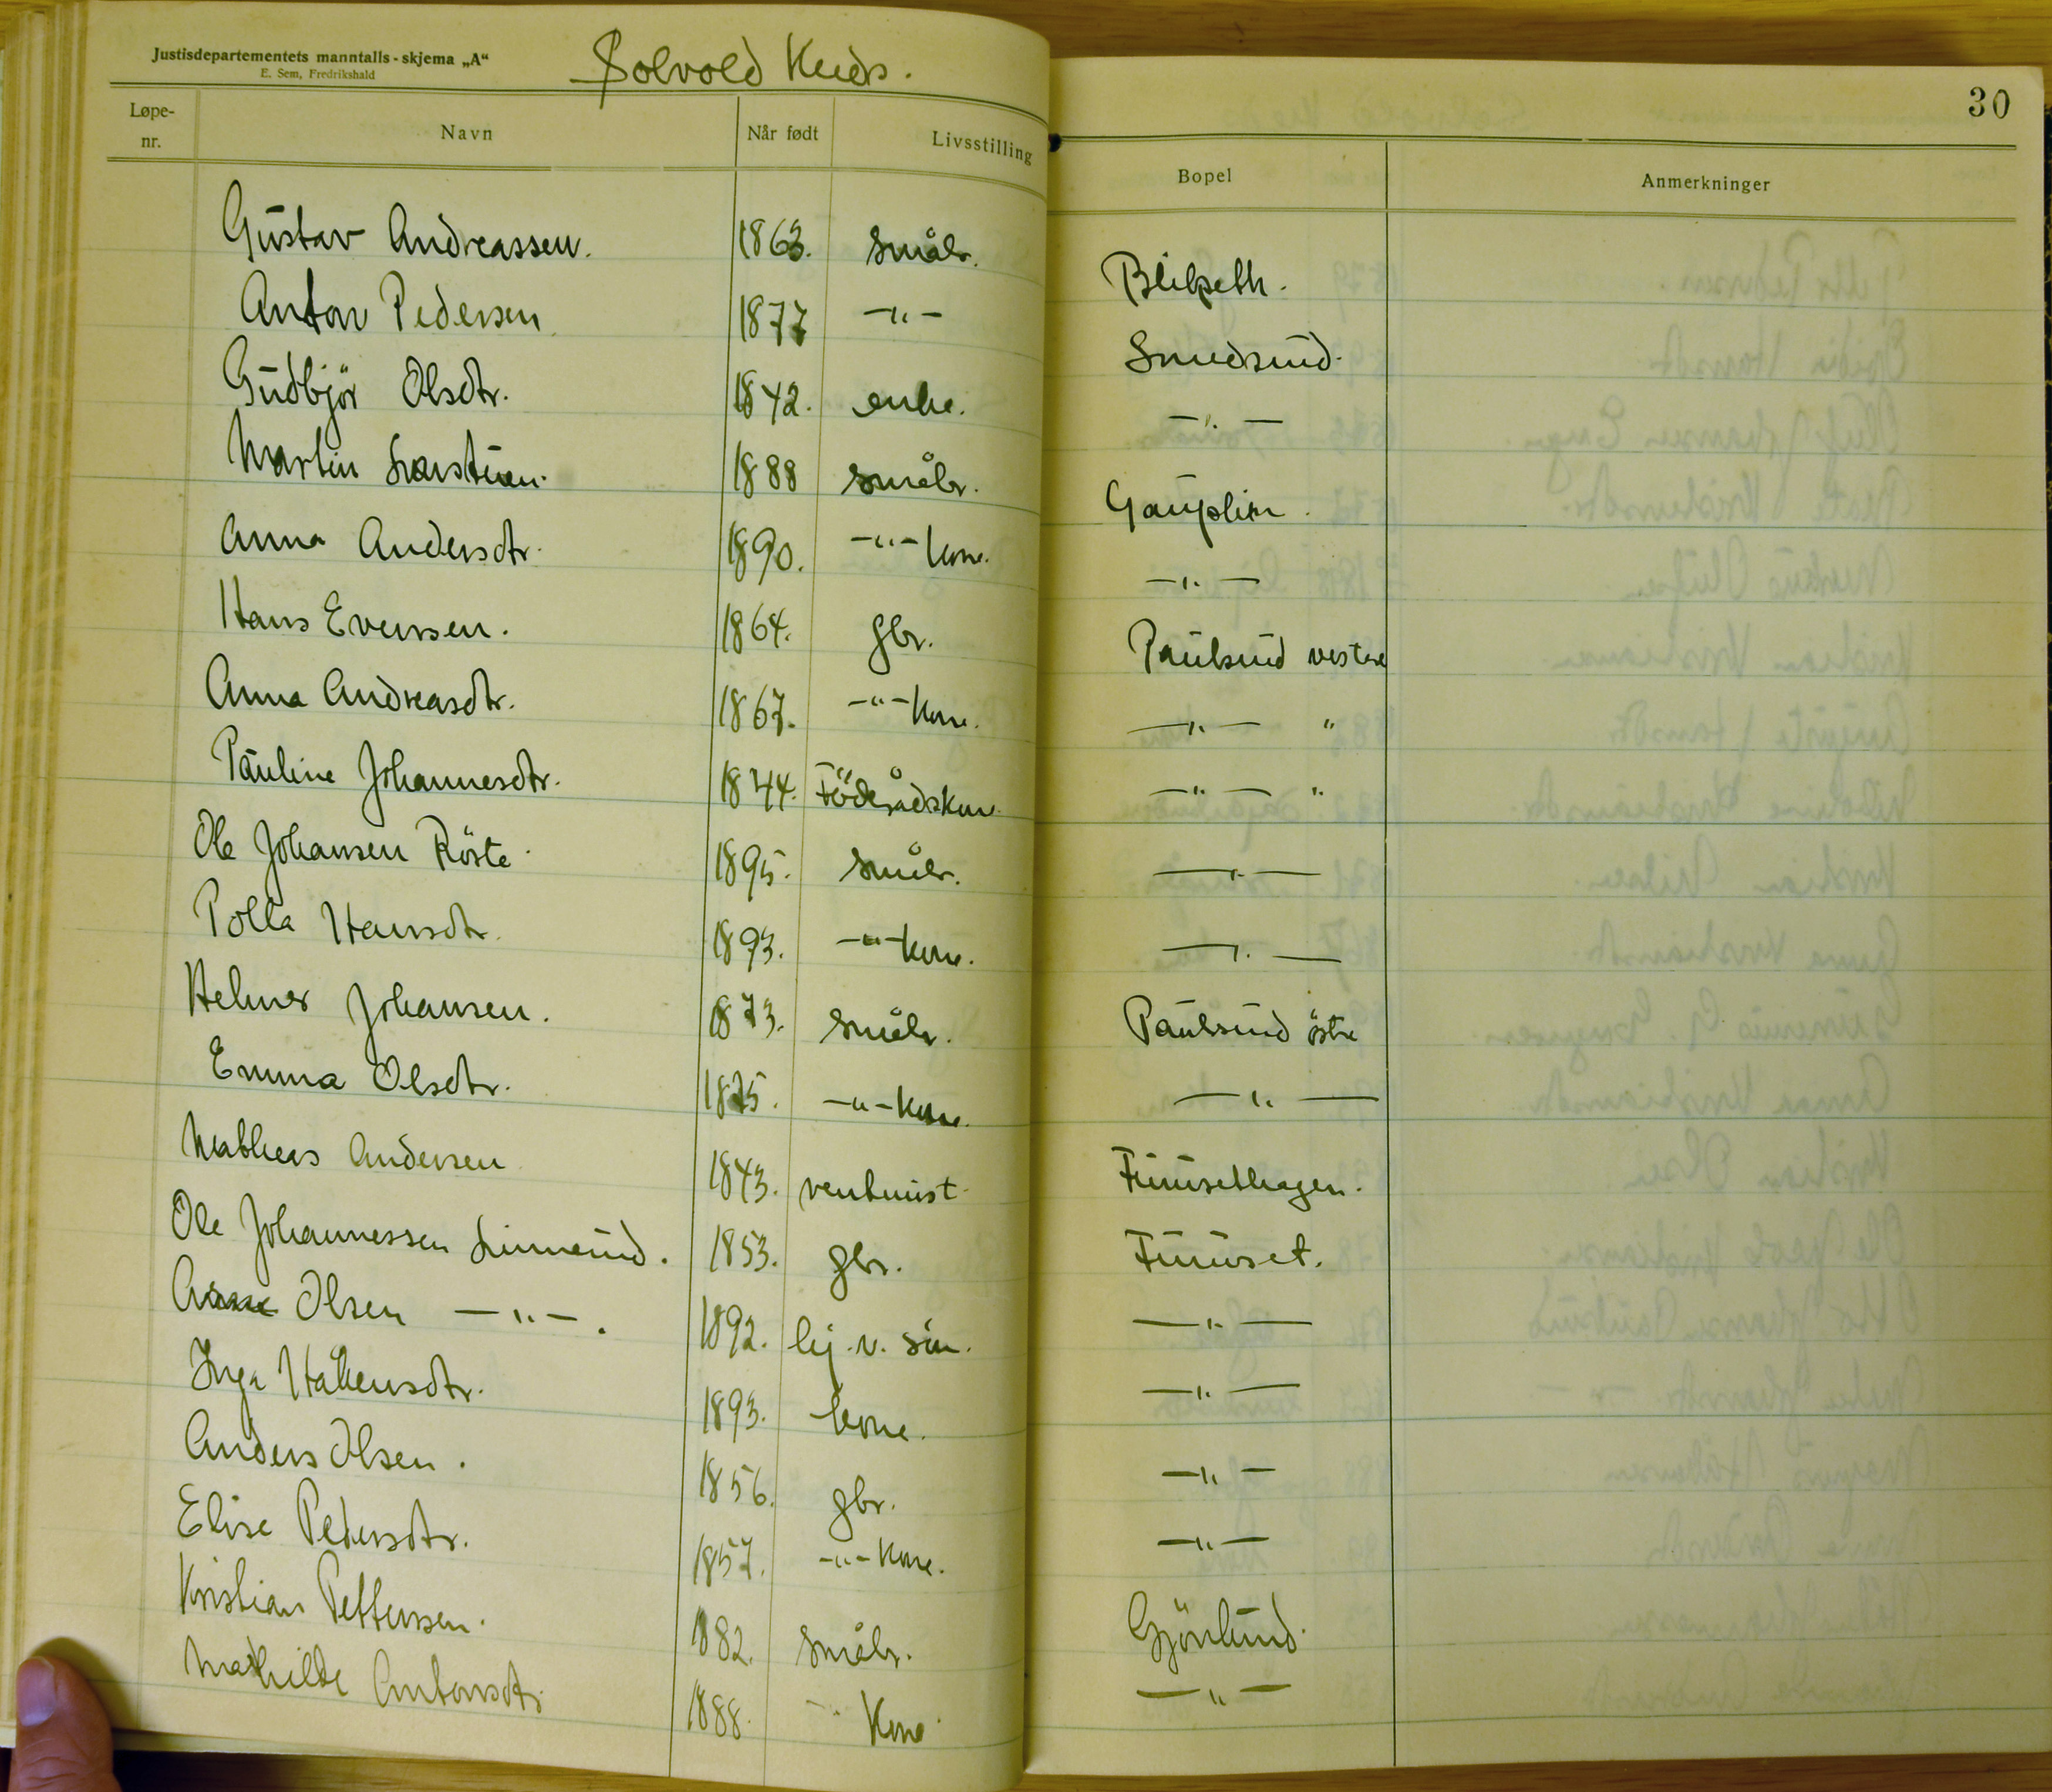 Justisdepartementets manntalls-skjema „A“
E. Sem, Fredrikshald
Solvold Kreds.
30
Løpe-nr. Navn Når født Livsstilling Bopel Anmerkninger
Gustav Andreassen. 1863. småbr. Blikseth.
Anton Pedersen 1877 -"- Smedsund.
Gudbjör Olsdtr. 1842. enke. -"-
Martin 1888 småbr. Gauplien.
Anna Andersdtr. 1890. -"- kone. -"-
Hans Evensen. 1864. gbr. Paulsrud vestre
Anna Andreasdtr. 1867. -"- kone. -"- "
Pauline Johannesdtr. 1844. Föderådskone -"- "
Ole Johansen Röste 1895. småbr. -"-
Polla Hansdtr. 1893. -"- kone. -"-
Helmer Johansen. 1873. småbr. Paulsrud östre
Emma Olsdtr. 1875. -"- kone. -"-
Matheas Andersen 1843. rentenist Fuusethagen.
Ole Johannessen Linnerud. 1853. gbr. Fuuset.
Olsen -"-. 1892. lej. v. sön. -"-
Inga Håkensdtr. 1893. kone. -"-
Anders Olsen. 1856. gbr. -"-
Elise Pedersdtr. 1857. -"- kone. -"-
Kristian Pettersen. 1882. småbr. Gjörlund.
Mathilde Antonsdtr. 1888. Kone -"-